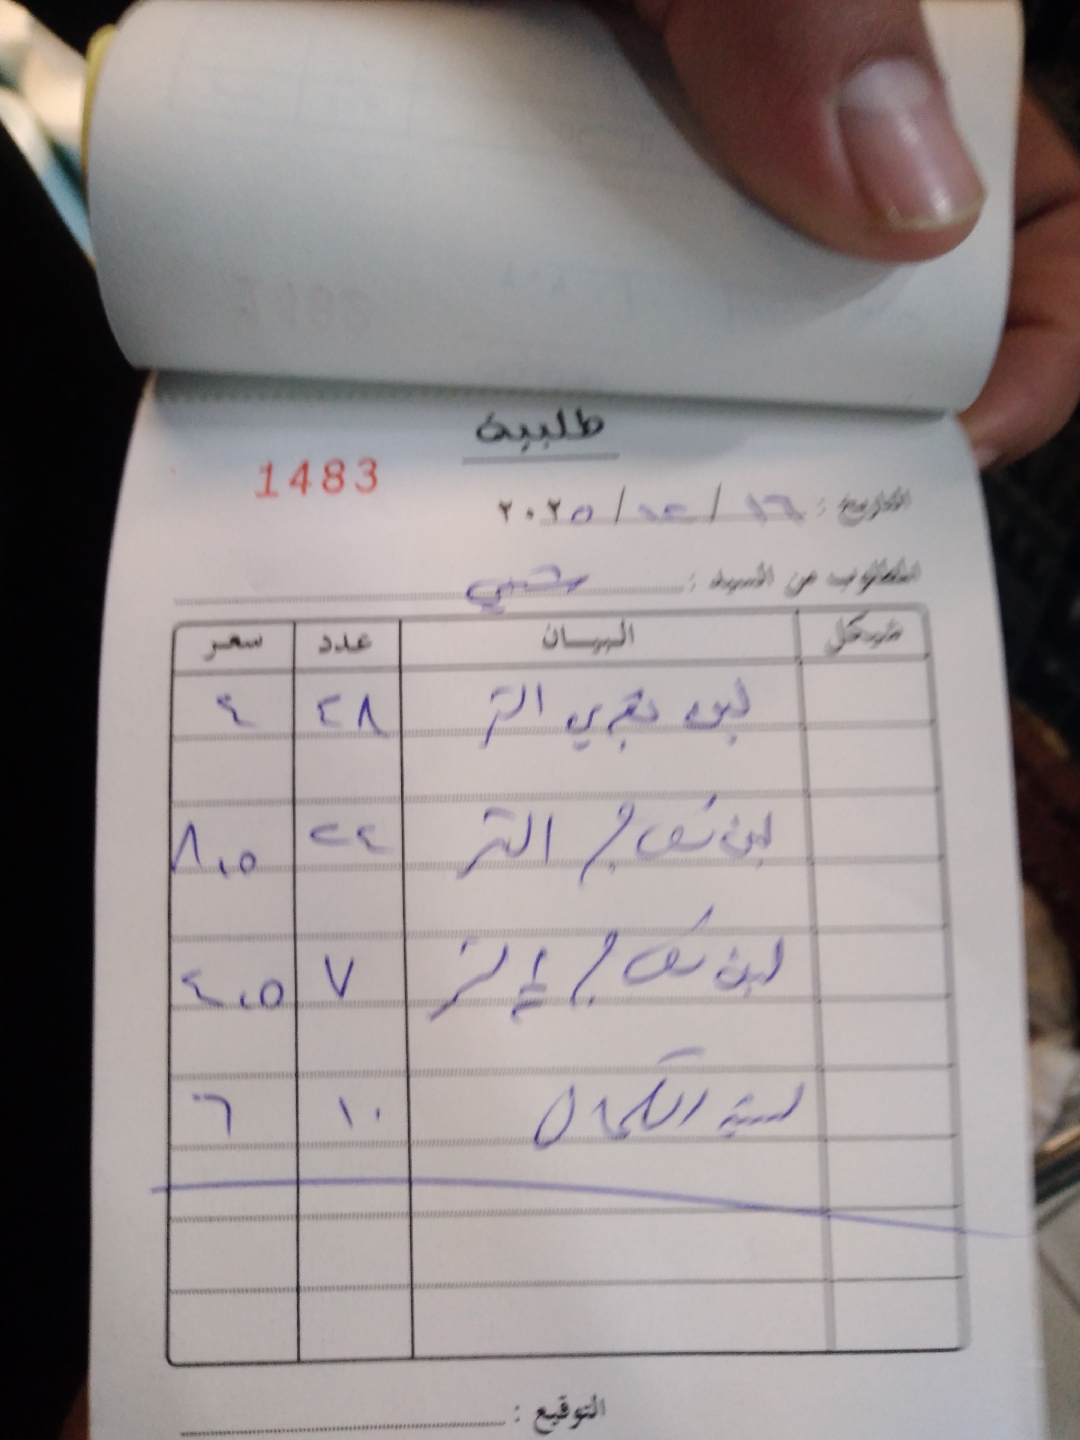 طلبية
1483
التاريخ : ١٦ / ١٢ / ٢٠٢٥
المطلوب من السيد :
مسلسل البيان عدد سعر
لبن بقري التر ٢٨ ٤
لبن نعاج التر ٢٤ ٨،٥
لبن نعاج لتر ٧ ٤،٥
لبنة ١٠ ٦
التوقيع :